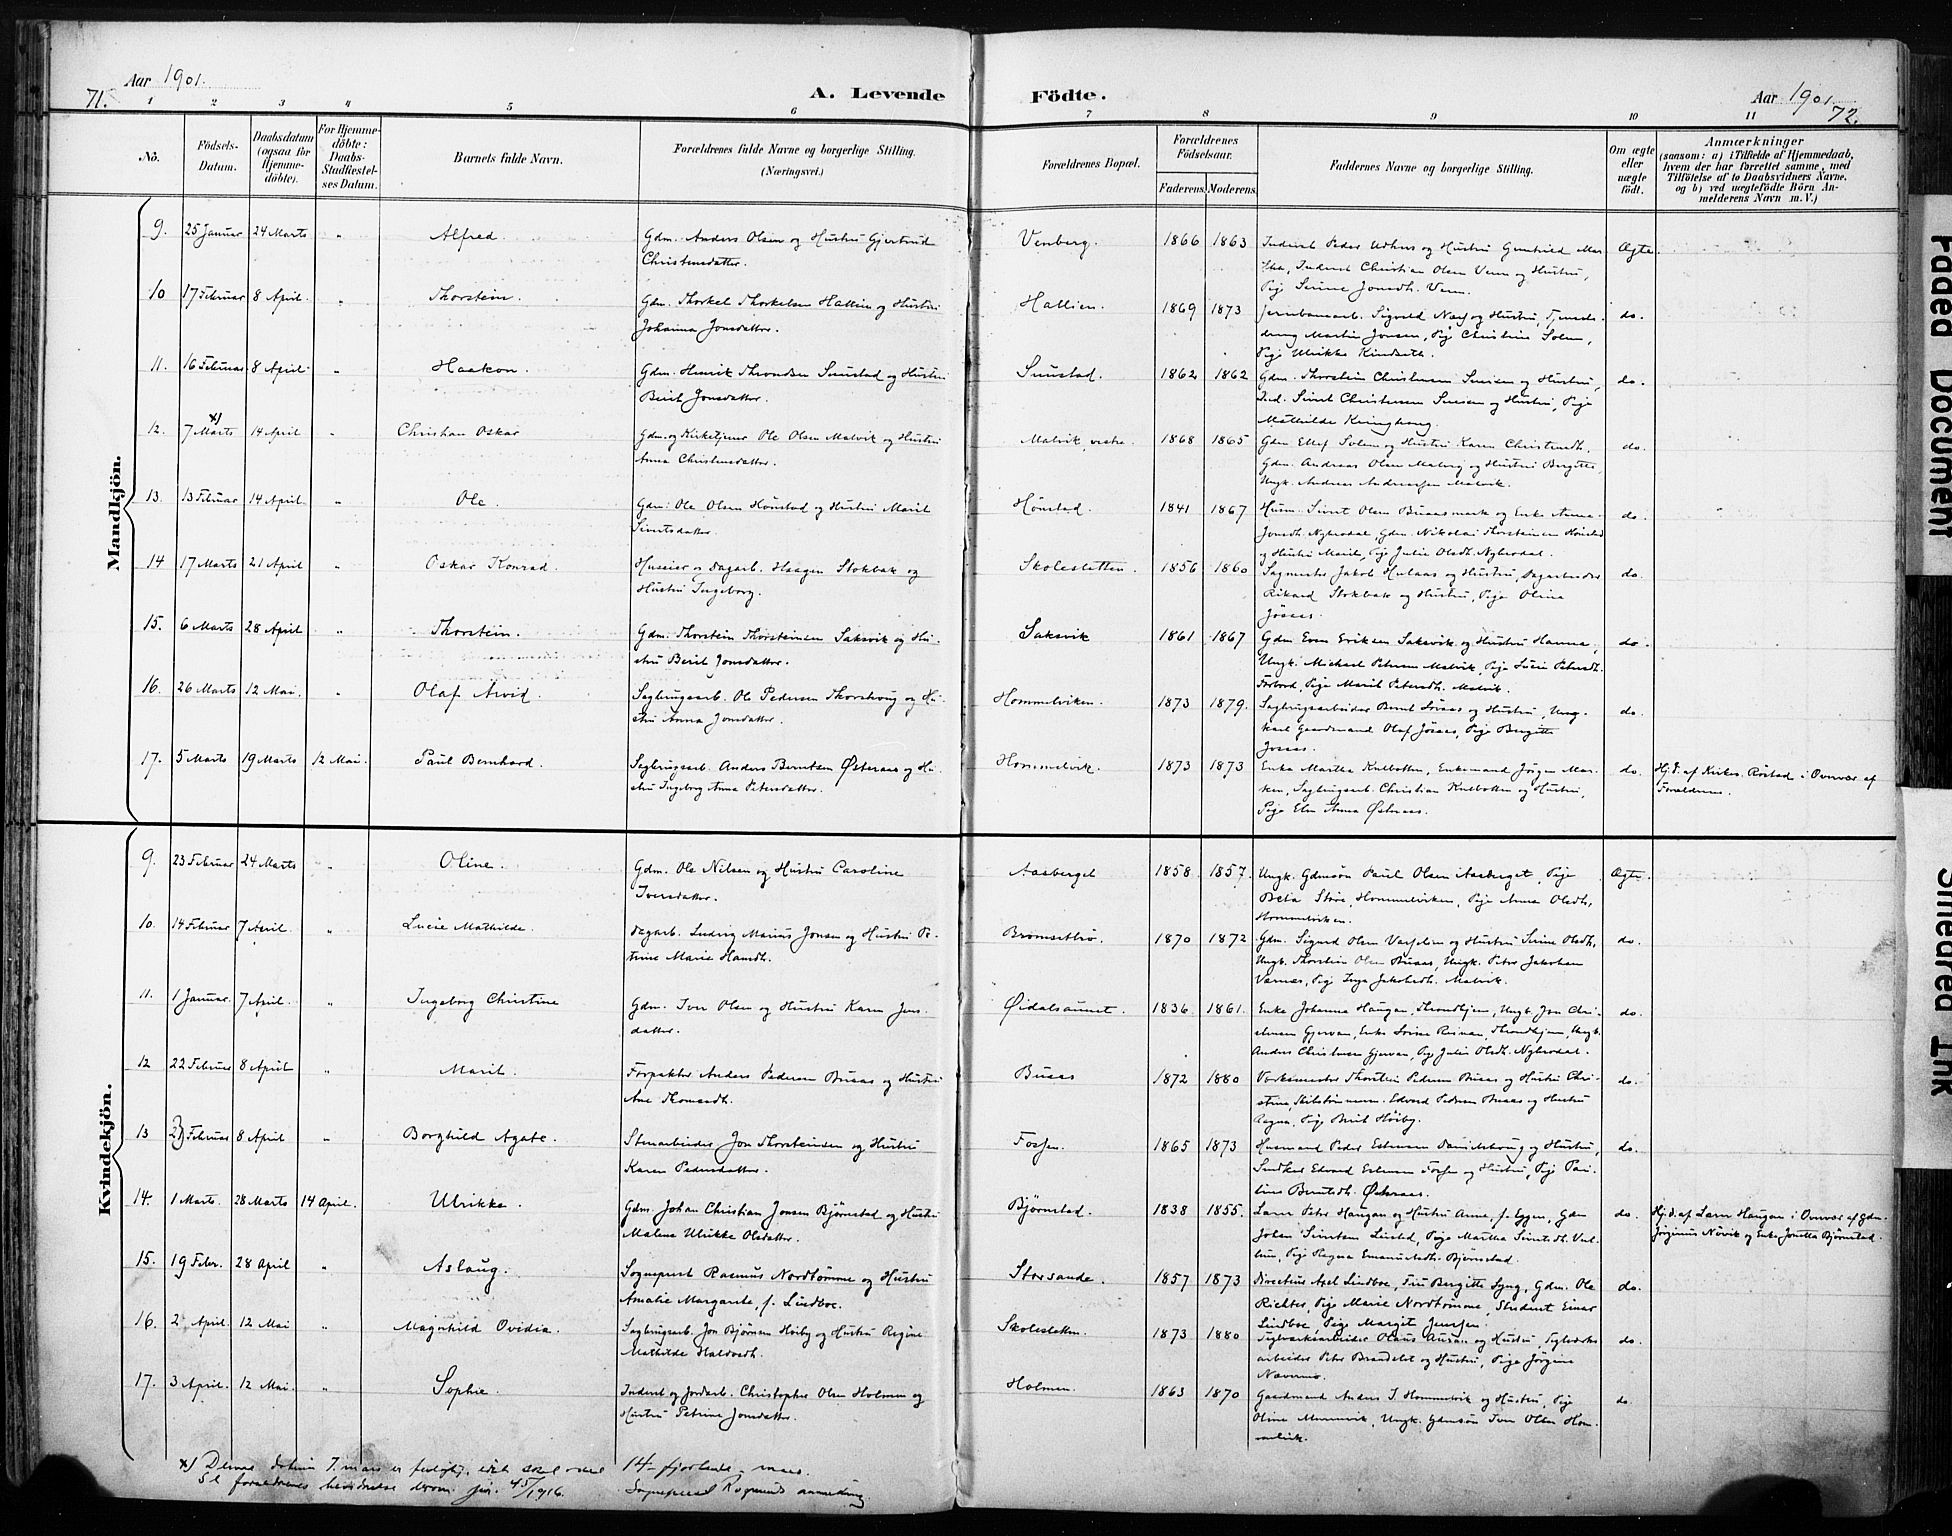 Aar 1901.
71.
A. Levende Födte.
Aar 1901
72.
1 2 3 4 5 6 7 8 9 10 11
No.
Födsels-Datum.
Daabsdatum (ogsaa for Hjemme-döbte).
For Hjemme-döbte: Daabs-Stadfæstel-ses Datum.
Barnets fulde Navn.
Forældrenes fulde Navne og borgerlige Stilling. (Næringsvei.)
Forældrenes Bopæl.
Forældrenes Födselsaar.
Faderens. Moderens.
Faddernes Navne og borgerlige Stilling.
Om ægte eller uægte födt.
Anmærkninger
(saasom: a) i Tilfælde af Hjemmedaab, hvem der har forrettet samme, med Tilföielse af to Daabsvidners Navne, og b) ved uægtefödte Börn An-melderens Navn m. V.)
Mandkjön.
9. 25 Januar 24 Marts " Alfred. Gdm. Anders Olsen og Hustru Gjertrud Christensdatter. Venberg. 1866 1863 Inderst Peder Udhus og Hustru Gunhild Mar-
tha, Inderst Christian Olsen Venn og Hustru,
Pige Serine Jonsdh. Venn. Ægte.
10 17 Februar 8 April. " Thorstein. Gdm. Thorkel Thorkelsen Hallien og Hustru
Johanna Jonsdatter. Hallien. 1869 1873 Jernbanearb. Sigvald Næss og Hustru,
Martin Jonsen, Pige Christine Solem,
Pige Ulrikke Kindseth. do.
11. 16 Februar 8 April. " Haakon. Gdm. Henrik Throndsen Smustad og Hustru
Berit Jonsdatter. Smustad. 1862 1862 Gdm. Thorstein Christensen og Hustru,
Ind. Sivert Christensen og Hustru, Pige
Mathilde do.
12. 7 Marts x) 14 April " Christian Oskar Gdm. og Kirketjener Ole Olsen Malvik og Hustru
Anna Christensdatter. Malvik vestre. 1868 1865 Gdm Ellef Solem og Hustru Karen Christensdh.
Gdm. Andreas Olsen Malvig og Hustru Bergitte,
Ungk. Andreas Andreassen Malvik. do.
13. 13 Februar 14 April " Ole. Gdm: Ole Olsen Hønstad og Hustru Marit
Sivertsdatter. Hønstad. 1841 1867 Husm. Sivert Olsen Buaasmark og Enke Anne
Jonsdh. Nybrodal, Gdm. Nikolai Thorsteinsen Hønstad
og Hustru Marit, Pige Julie Olsdh. Nybrodal. do.
14 17 Marts 21 April " Oskar Konrad. Huseier og Dagarb. Haagen Stokbak og
Hustru Ingeborg. Skolesletten. 1856 1860 Sagmester Jakob Hulaas og Hustru, Dagarbeider
Rikard Stokbak og Hustru, Pige Olina
Jøsaas. do.
15. 6 Marts 28 April " Thorstein. Gdm. Thorstein Thorsteinsen Saksvik og Hu-
stru Berit Jonsdatter. Saksvik 1861 1867 Gdm Even Eriksen Saksvik og Hustru Hanna,
Ungk. Michael Petersen Malvik, Pige Petersdh.
Forbord, Pige Marit Petersdh. Malvik. do.
16. 26 Marts 12 Mai. " Olaf Arvid. Sagbrugsarb. Ole Pedersen Thorshoug og Hu-
stru Anna Jonsdatter. Hommelviken. 1873 1879. Sagbrugsarbeider Bernt Jøsaas og Hustru, Ung-
karl Gaardmand Olaf Jøsaas, Pige Bergitte
Jøsaas. do.
17. 5 Marts 19 Marts 12 Mai. Paul Bernhard. Sagbrugsarb. Anders Berntsen Østeraas og Hu-
stru Ingeborg Anna Petersdatter. Hommelvik. 1873 1873 Enke Martha Kulbotten, Enkemand Jørgen Mar-
ken, Sagbrugsarb. Christian Kulbotten og Hustru,
Pige Elen Anna Østeraas. do. Hj.d. af Kirkes. Røstad i Overvær af
Forældrene.
Kvindekjön.
9. 23 Februar 24 Marts " Oline. Gdm. Ole Nilsen og Hustru Caroline
Iversdatter. Aasberget 1858 1857. Ungk. Gdmsøn Paul Olsen Aasberget, Pige
Beta Støre, Hommelviken, Pige Anna Olsdh,
Hommelviken. Ægte.
10. 14 Februar 7 April. " Lucie Mathilde. Dagarb. Ludvig Marius Jonsen og Hustru Pe-
trine Marie Hansdh. Bromsetbrø. 1870 1872 Gdm. Sigurd Olsen Varpelien og Hustru Serine Olsdh,
Ungk. Thorstein Olsen Buaas, Ungk. Peter Jakobsen
Værnes, Pige Inga Jakobsdh. Malvik. do.
11. 1 Januar. 7 April. " Ingeborg Christine Gdm. Iver Olsen og Hustru Karen Jens
datter. Øidalsaunet. 1836 1861. Enke Johanna Haugan, Throndhjem, Ungk. Jon Chri-
stensen Gjervan, Enke Serine Reinan, Throndhjem, Ungk.
Anders Christensen Gjervan, Pige Julie Olsdh. Nybrodal. do.
12 22 Februar 8 April " Marit. Forpakter Anders Pedersen Buaas og Hustru
Ane Thomasdh. Buaas 1872 1880 Værksmester Thorstein Pedersen Buaas og Hustru Chri-
stine, Edvard Pedersen Buaas og Hustru
Ragna, Pige Berit Høiby. do.
13 Februar 8 April " Borghild Agate. Stenarbeider Jon Thorsteinsen og Hustru
Karen Pedersdatter. Fossen. 1865 1873 Husmand Peder Estensen og Hustru,
Edvard Estensen Fossen og Hustru, Pige Pau-
line Berntsdh. Østeraas. do.
14. 1 Marts. 28 Marts 14 April. Ulrikke. Gdm. Johan Christian Jonsen Bjørnstad og Hustru
Malena Ulrikke Olsdatter. Bjørnstad. 1838 1855. Lærer Peter Haugan og Hustru Anne f. Eggen, Gdm
Johan Sivertsen, Pige Martha Sivertsdh.
Pige Ragna Emanuelsdh. Bjørnstad. do. Hj.d. af Lærer Haugan i Overvær af Gdm.
Jørginus Növik og Enke Jonetta Bjørnstad.
15. 19 Febr. 28 April " Aslaug. Sognepræst Rasmus Nordtømme og Hustru
Amalie Margarete, f. Lindboe. Storsande. 1857 1873 Direktør Axel Lindboe, Fru Bergitte Lyng, Gdm. Ole
Richter, Pige Marie Nordtømme, Student Einar
Lindboe, Pige Margit Jenssen. do.
16. 2 April. 12 Mai " Magnhild Ovidia. Sagbrugsarb. Jon Bjørnsen Høiby og Hustru Regine
Mathilde Haldosdh. Skolesletten. 1873 1880 Teglværksarbeider Olaus Auran og Hustru, Teglværks
arbeider Peter Brandslet og Hustru, Pige Jørgine
Nævermo. do.
17. 3 April. 12 Mai. " Sophie. Inderst og Jordarb. Christopher Olsen Holmen og
Hustru Petrine Jonsdatter. Holmen. 1863 1870 Gaardmand Anders J. Hommelvik og Hustru, Pige
Oline Mumvik, Ungk. Gdmsøn Iver Olsen Hom-
melvik. do.
x) Denne datum 7. mars er feilagtig, idet skal være 14 - fjortende - mars.
forældrenes bevidnelse derom. jfr. 45/1916. Sogneprest anmerkning.
Faded Document
Smeared Ink